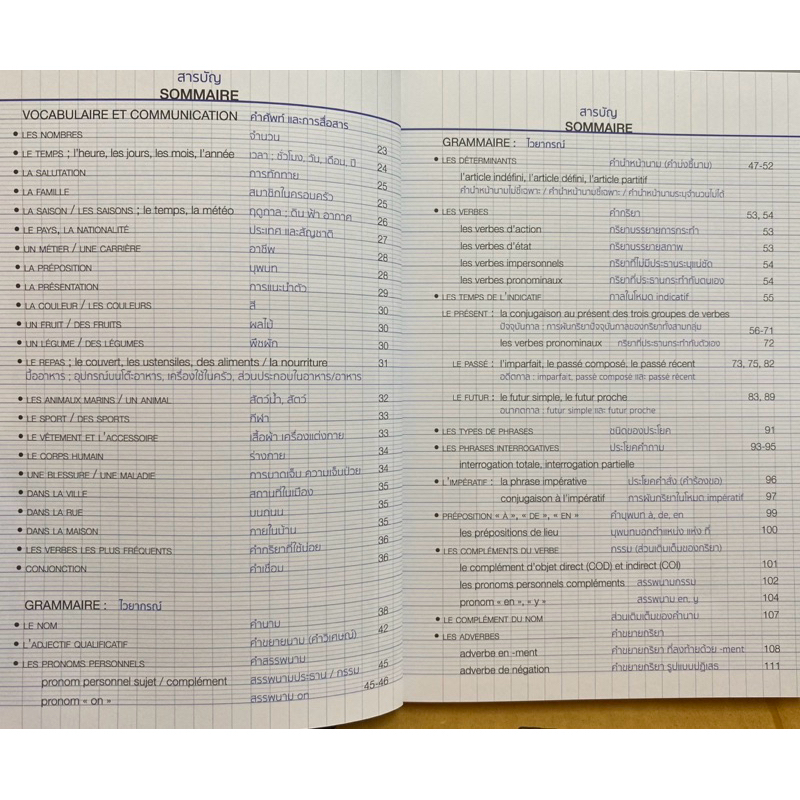 สารบัญ
SOMMAIRE
VOCABULAIRE ET COMMUNICATION คำศัพท์ และการสื่อสาร
• LES NOMBRES จำนวน 23
• LE TEMPS ; l'heure, les jours, les mois, l'année เวลา : ชั่วโมง, วัน, เดือน, ปี 24
• LA SALUTATION การทักทาย 25
• LA FAMILLE สมาชิกในครอบครัว 25
• LA SAISON / LES SAISONS ; le temps, la météo ฤดูกาล : ดิน ฟ้า อากาศ 26
• LE PAYS, LA NATIONALITÉ ประเทศ และสัญชาติ 27
• UN MÉTIER / UNE CARRIÈRE อาชีพ 28
• LA PRÉPOSITION บุพบท 28
• LA PRÉSENTATION การแนะนำตัว 29
• LA COULEUR / LES COULEURS สี 30
• UN FRUIT / DES FRUITS ผลไม้ 30
• UN LÉGUME / DES LÉGUMES พืชผัก 30
• LE REPAS ; le couvert, les ustensiles, des aliments / la nourriture 31
มื้ออาหาร : อุปกรณ์บนโต๊ะอาหาร, เครื่องใช้ในครัว, ส่วนประกอบในอาหาร/อาหาร
• LES ANIMAUX MARINS / UN ANIMAL สัตว์น้ำ, สัตว์ 32
• LE SPORT / DES SPORTS กีฬา 33
• LE VÊTEMENT ET L'ACCESSOIRE เสื้อผ้า เครื่องแต่งกาย 33
• LE CORPS HUMAIN ร่างกาย 34
• UNE BLESSURE / UNE MALADIE การบาดเจ็บ ความเจ็บป่วย 34
• DANS LA VILLE สถานที่ในเมือง 35
• DANS LA RUE บนถนน 35
• DANS LA MAISON ภายในบ้าน 35
• LES VERBES LES PLUS FRÉQUENTS คำกริยาที่ใช้บ่อย 36
• CONJONCTION คำเชื่อม 36
GRAMMAIRE : ไวยากรณ์
• LE NOM คำนาม 38
• L'ADJECTIF QUALIFICATIF คำขยายนาม (คำวิเศษณ์) 42
• LES PRONOMS PERSONNELS คำสรรพนาม
pronom personnel sujet / complément สรรพนามประธาน / กรรม 45
pronom « on » สรรพนาม on 45-46
สารบัญ
SOMMAIRE
GRAMMAIRE : ไวยากรณ์
• LES DÉTERMINANTS คำนำหน้านาม (คำบ่งชี้นาม) 47-52
l'article indéfini, l'article défini, l'article partitif
คำนำหน้านามไม่ชี้เฉพาะ / คำนำหน้านามชี้เฉพาะ / คำนำหน้านามระบุจำนวนไม่ได้
• LES VERBES คำกริยา 53, 54
les verbes d'action กริยาบรรยายการกระทำ 53
les verbes d'état กริยาบรรยายสภาพ 53
les verbes impersonnels กริยาที่ไม่มีประธานระบุแน่ชัด 54
les verbes pronominaux กริยาที่ประธานกระทำกับตนเอง 54
• LES TEMPS DE L'INDICATIF กาลในโหมด indicatif 55
LE PRÉSENT : la conjugaison au présent des trois groupes de verbes
ปัจจุบันกาล : การผันกริยาปัจจุบันกาลของกริยาทั้งสามกลุ่ม 56-71
les verbes pronominaux กริยาที่ประธานกระทำกับตัวเอง 72
LE PASSÉ : l'imparfait, le passé composé, le passé récent 73, 75, 82
อดีตกาล : imparfait, passé composé และ passé récent
LE FUTUR : le futur simple, le futur proche 83, 89
อนาคตกาล : futur simple และ futur proche
• LES TYPES DE PHRASES ชนิดของประโยค 91
• LES PHRASES INTERROGATIVES ประโยคคำถาม 93-95
interrogation totale, interrogation partielle
• L'IMPÉRATIF : la phrase impérative ประโยคคำสั่ง (คำร้องขอ) 96
conjugaison à l'impératif การผันกริยาในโหมด impératif 97
• PRÉPOSITION « À », « DE », « EN » คำบุพบท à, de, en 99
les prépositions de lieu บุพบทบอกตำแหน่ง แห่ง ที่ 100
• LES COMPLÉMENTS DU VERBE กรรม (ส่วนเติมเต็มของกริยา)
le complément d'objet direct (COD) et indirect (COI) 101
les pronoms personnels compléments สรรพนามกรรม 102
pronom « en », « y » สรรพนาม en, y 104
• LE COMPLÉMENT DU NOM ส่วนเติมเต็มของคำนาม 107
• LES ADVERBES คำขยายกริยา
adverbe en -ment คำขยายกริยา ที่ลงท้ายด้วย -ment 108
adverbe de négation คำขยายกริยา รูปแบบปฏิเสธ 111